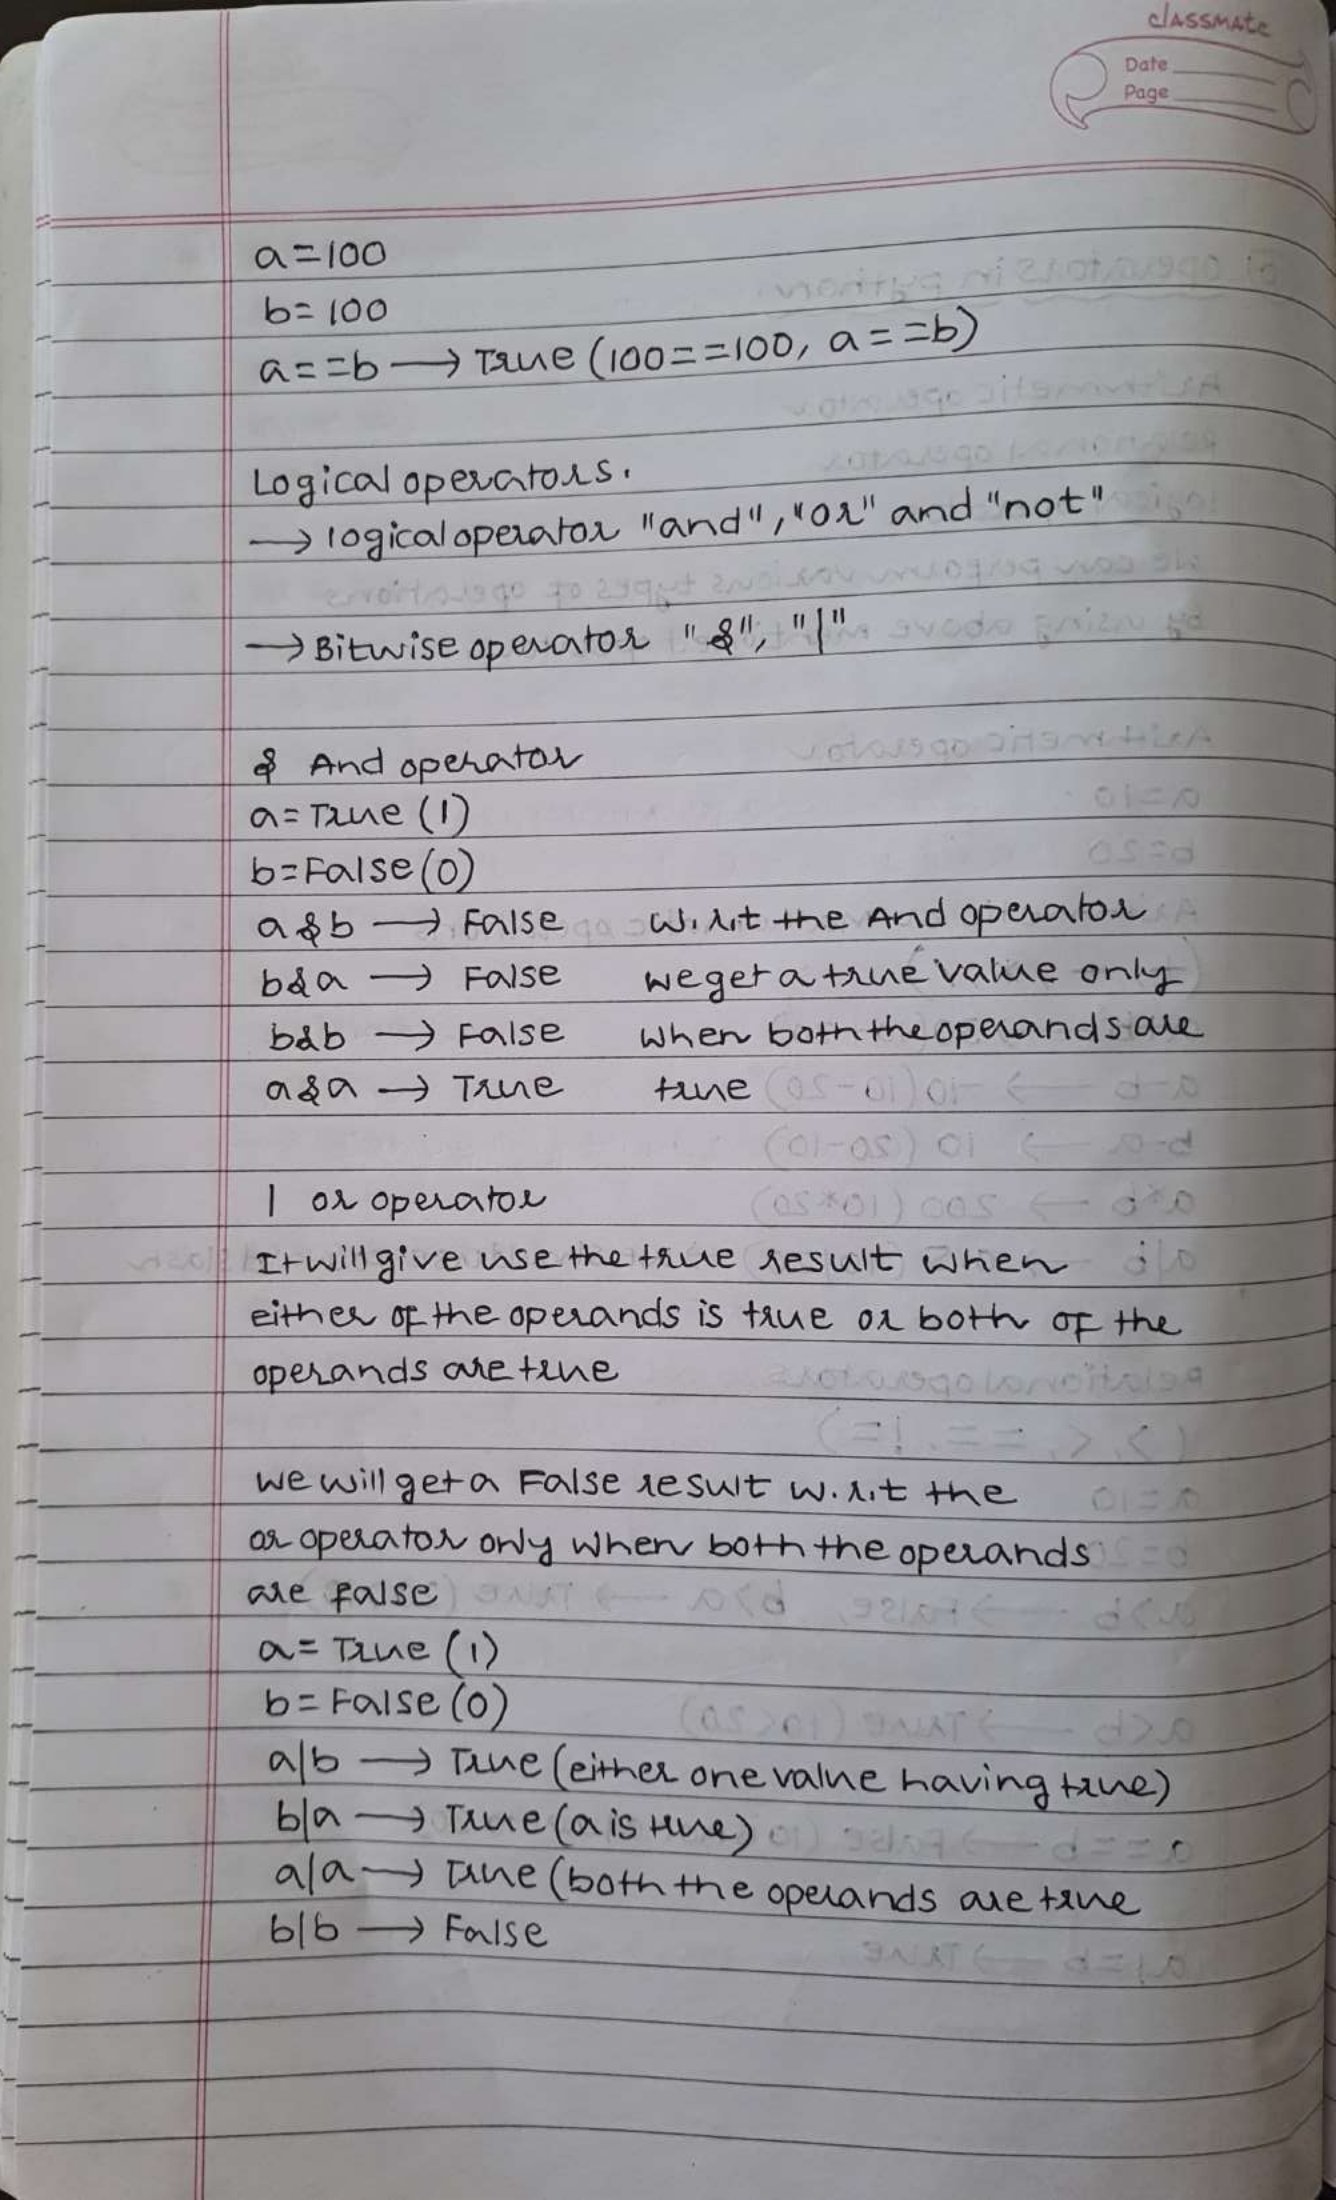 classmate
Date
Page
a=100
b=100
a==b → True (100==100, a==b)
Logical operators.
→ logical operator "and", "or" and "not"
→ Bitwise operator "&", "|"
& And operator
a=True (1)
b=False (0)
a&b → False w.r.t the And operator
b&a → False we get a true value only
b&b → False when both the operands are
a&a → True true
| or operator
It will give use the true result when
either of the operands is true or both of the
operands are true
we will get a False result w.r.t the
or operator only when both the operands
are false
a= True (1)
b=False (0)
a|b → True (either one value having true)
b|a → True (a is true)
a|a → True (both the operands are true
b|b → False